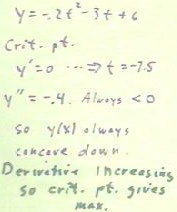 y = -.2t² - 3t + 6
Crit. pt.
y' = 0 ... ⇒ t = -7.5
y'' = -.4. Always < 0
so y(x) always
concave down.
Derivative Increasing
so crit. pt. gives
max.